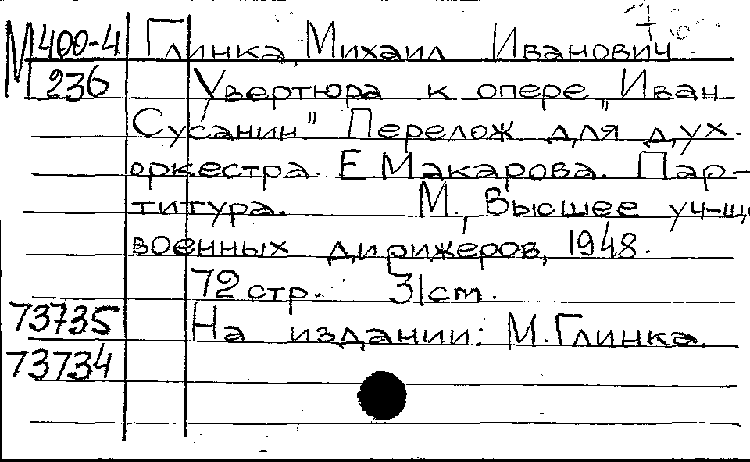 М 400-4 Глинка, Михаил Иванович
236 Увертюра к опере „Иван
Сусанин" Перелож. для дух.
оркестра Е. Макарова. Пар-
титура. М., Высшее уч-ще
военных дирижеров, 1948.
72 стр. 31 cm.
73735 На издании: М. Глинка.
73734